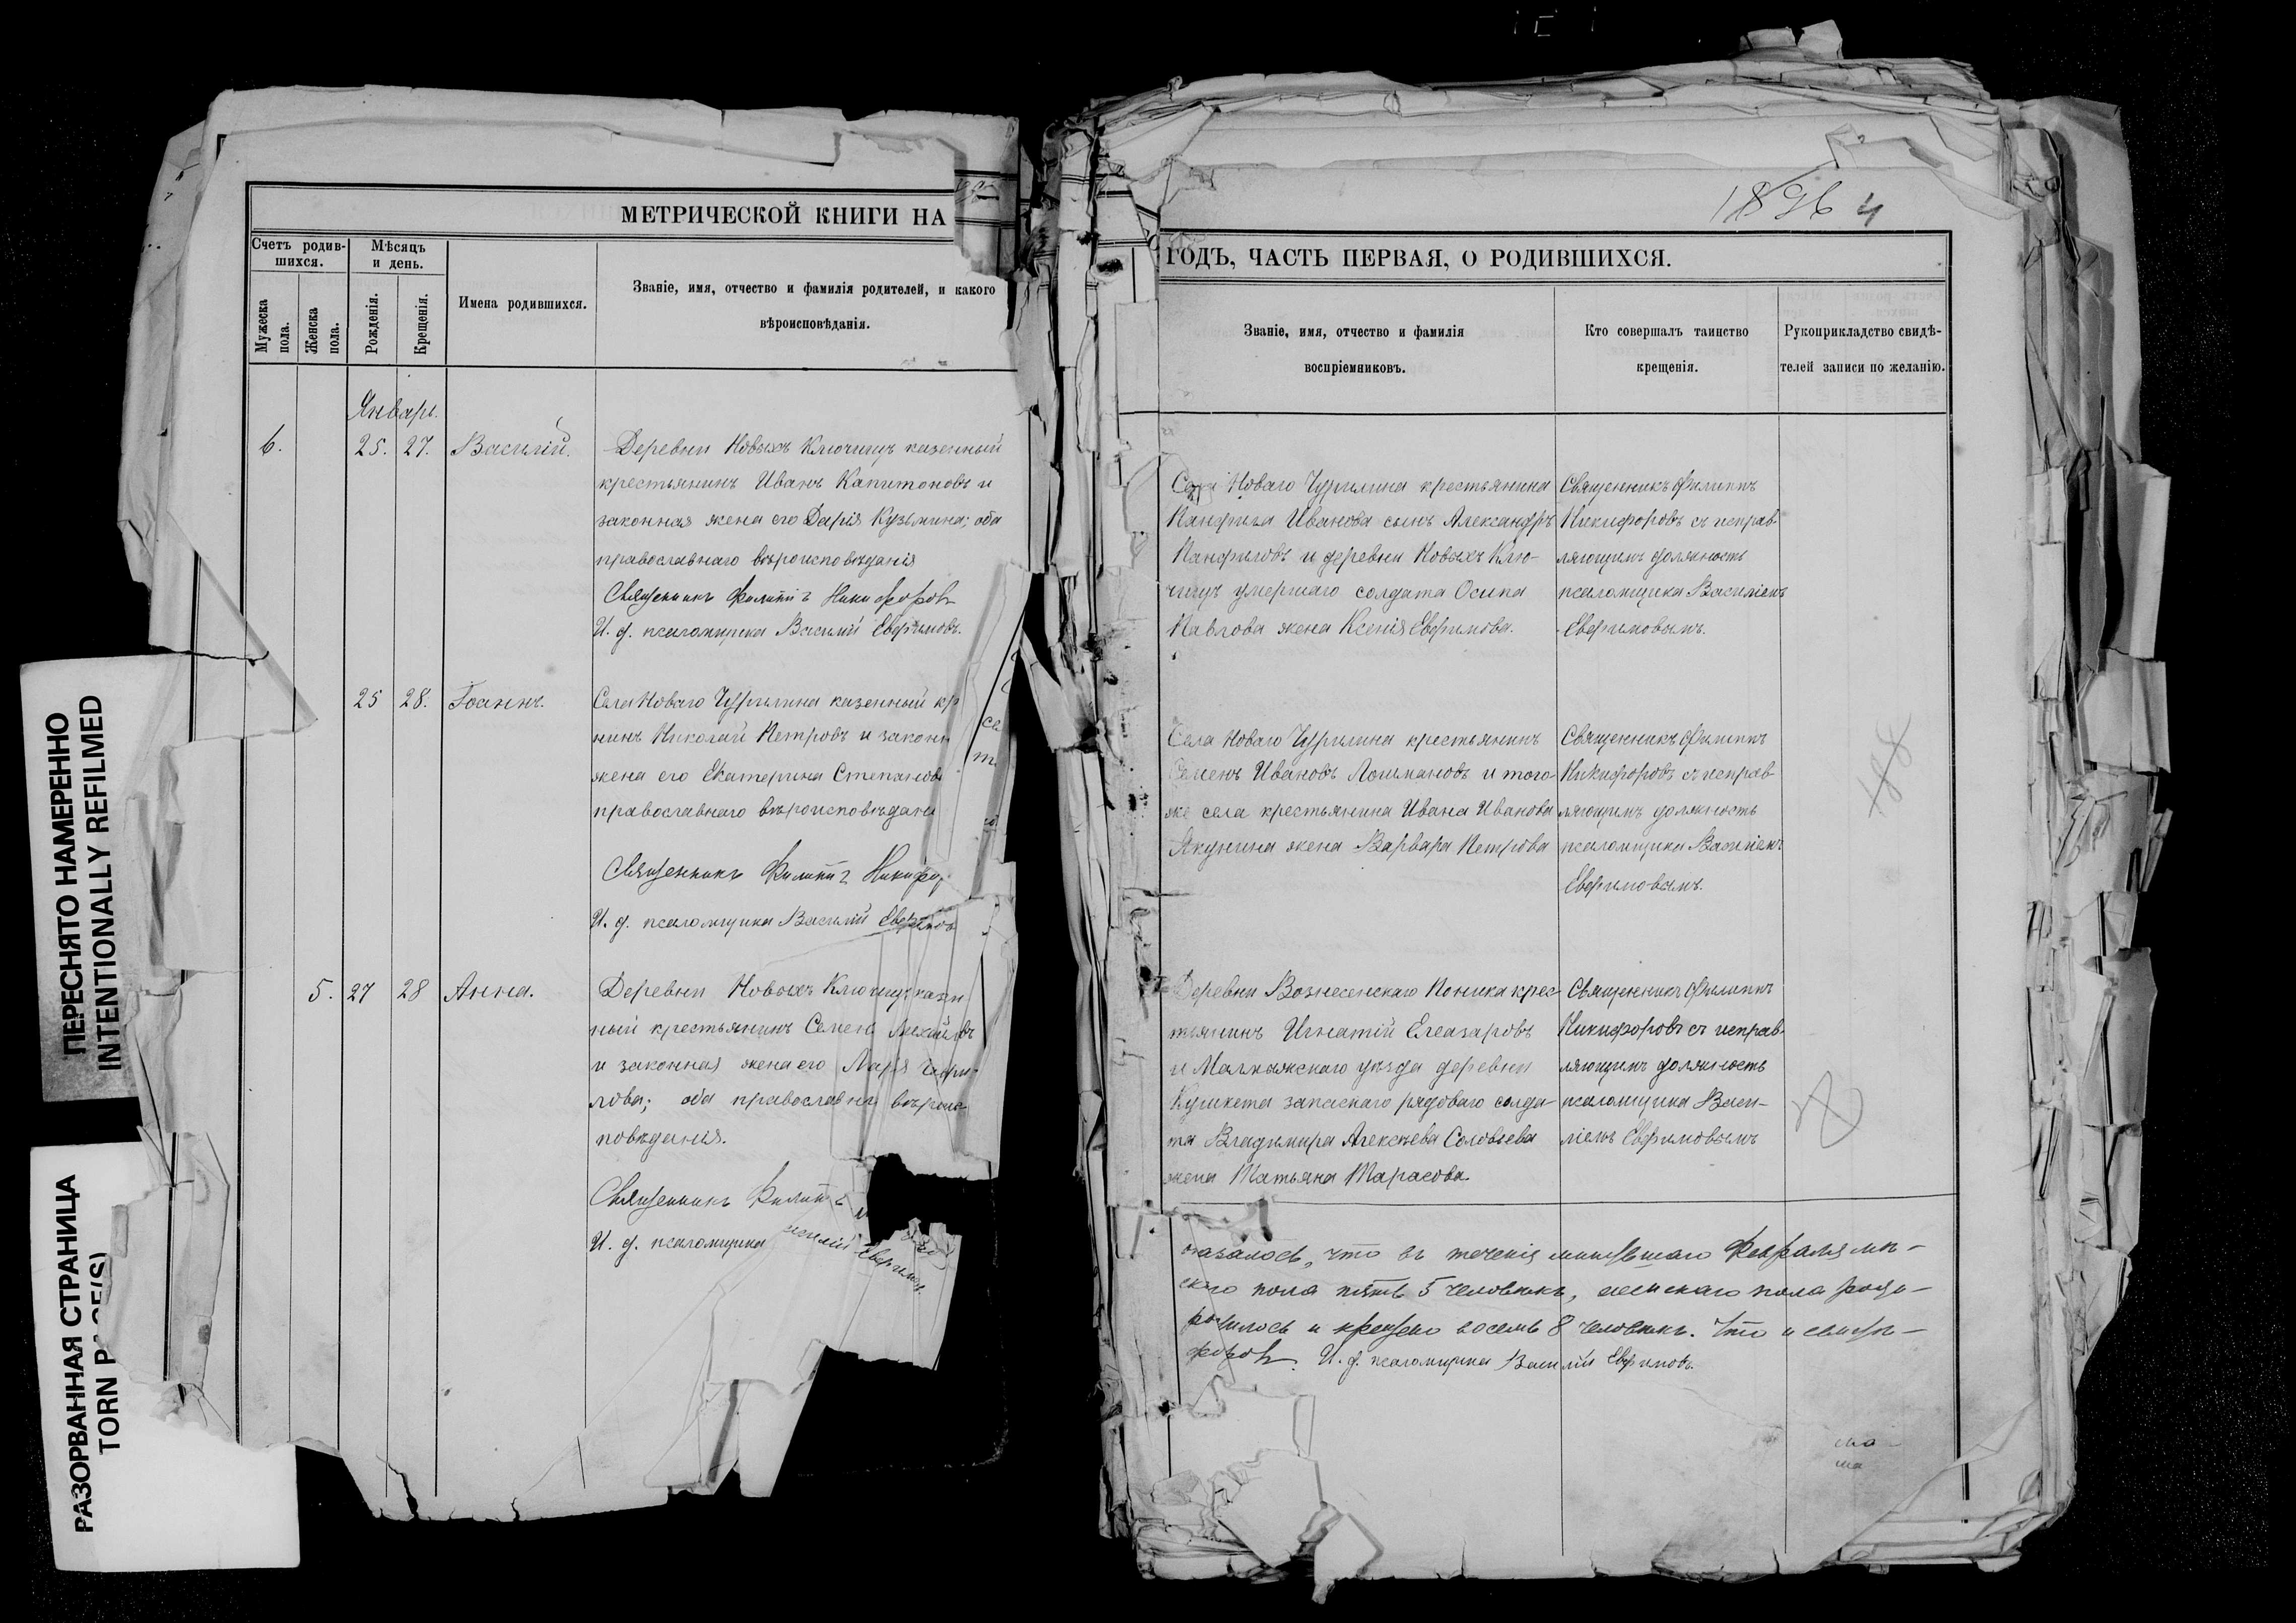 МЕТРИЧЕСКОЙ КНИГИ НА
Счетъ родив-
шихся.
Мѣсяцъ
и день.
Мужеска
пола.
Женска
пола.
Рожденія.
Крещенія.
Имена родившихся.
Званіе, имя, отчество и фамилія родителей, и какого
вѣроисповѣданія.
Январь.
6.
25.
27.
Василій.
Деревни Новыхъ Ключищъ казенный
крестьянинъ Иванъ Капитоновъ и
законная жена его Дарія Кузьмина; оба
православнаго вѣроисповѣданія
Священникъ Филиппъ Никифоровъ
И. д. псаломщика Василій Евфимовъ.
25
28.
Іоаннъ.
Села Новаго Чурилина казенный кр
нинъ Николай Петровъ и законн
жена его Екатерина Степанова
православнаго вѣроисповѣдані
Священникъ Филиппъ Никифо
И. д. псаломщика Василій Евфимовъ
5.
27
28
Анна.
Деревни Новыхъ Ключищъ казен
ный крестьянинъ Семенъ Михайловъ
и законная жена его Марія Гаври-
лова; оба православна вѣроис-
повѣданія.
Священникъ Филиппъ
И. д. псаломщика асилій Евфимов
1896 4
ГОДЪ, ЧАСТЬ ПЕРВАЯ, О РОДИВШИХСЯ.
Званіе, имя, отчество и фамилія
воспріемниковъ.
Кто совершалъ таинство
крещенія.
Рукоприкладство свидѣ-
телей записи по желанію.
Села Новаго Чурилина крестьянина
Панфила Иванова сынъ Александръ
Панфиловъ и деревни Новыхъ Клю-
чищъ умершаго солдата Осипа
Павлова жена Ксенія Евфимова.
Священникъ Филиппъ
Никифоровъ съ исправ-
ляющимъ должность
псаломщика Василіемъ
Евфимовымъ.
Села Новаго Чурилина крестьянинъ
Семенъ Ивановъ Лоштановъ и того-
же села крестьянина Ивана Иванова
Якунина жена Варвара Петрова
Священникъ Филиппъ
Никифоровъ съ исправ-
ляющимъ должность
псаломщика Василіемъ
Евфимовымъ.
Деревни Вознесенскаго Поника крес-
тьянинъ Игнатій Елеазаровъ
и Малмыжскаго уѣзда деревни
Кушкета запаснаго рядоваго солда-
та Владимира Алексѣева Соловьева
жена Татьяна Тарасова
Священникъ Филиппъ
Никифоровъ съ исправ-
ляющимъ должность
псаломщика Васи-
ліемъ Евфимовымъ
оказалось, что въ теченія минувшаго Февраля мѣ-
скаго пола пять 5 человѣкъ, женскаго пола роди-
родилось и крещено восемь 8 человѣкъ. Что и свидѣ-
форовъ. И. д. псаломщика Василій Евфимовъ.
ПЕРЕСНЯТО НАМЕРЕННО
INTENTIONALLY REFILMED
РАЗОРВАННАЯ СТРАНИЦА
TORN PAGE(S)